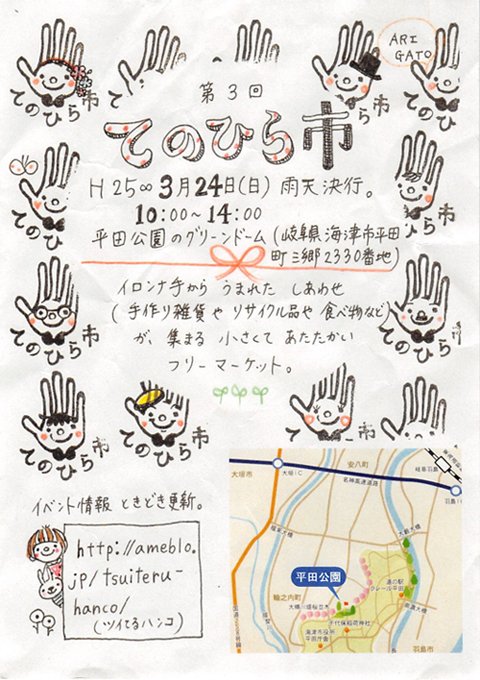 ARI
GATO
てのひら市
てのひら市
てのひら市
てのひら市
てのひら市
てのひら市
第3回
てのひら市
H25∞3月24日(日) 雨天決行。
10:00〜14:00
平田公園のグリーンドーム(岐阜県海津市平田
町三郷2330番地)
イロンナ手から うまれた しあわせ
(手作り雑貨や リサイクル品や 食べ物など)
が、集まる 小さくて あたたかい
フリーマーケット。
イベント情報 ときどき更新。
http://ameblo.
jp/tsuiteru-
hanco/
(ツイてるハンコ)
大垣市
大垣IC
安八町
名神高速道路
岐阜羽島
平田公園
輪之内町
道の駅
クレール平田
千代保稲荷神社
海津市役所
平田庁舎
南濃大橋
羽島市